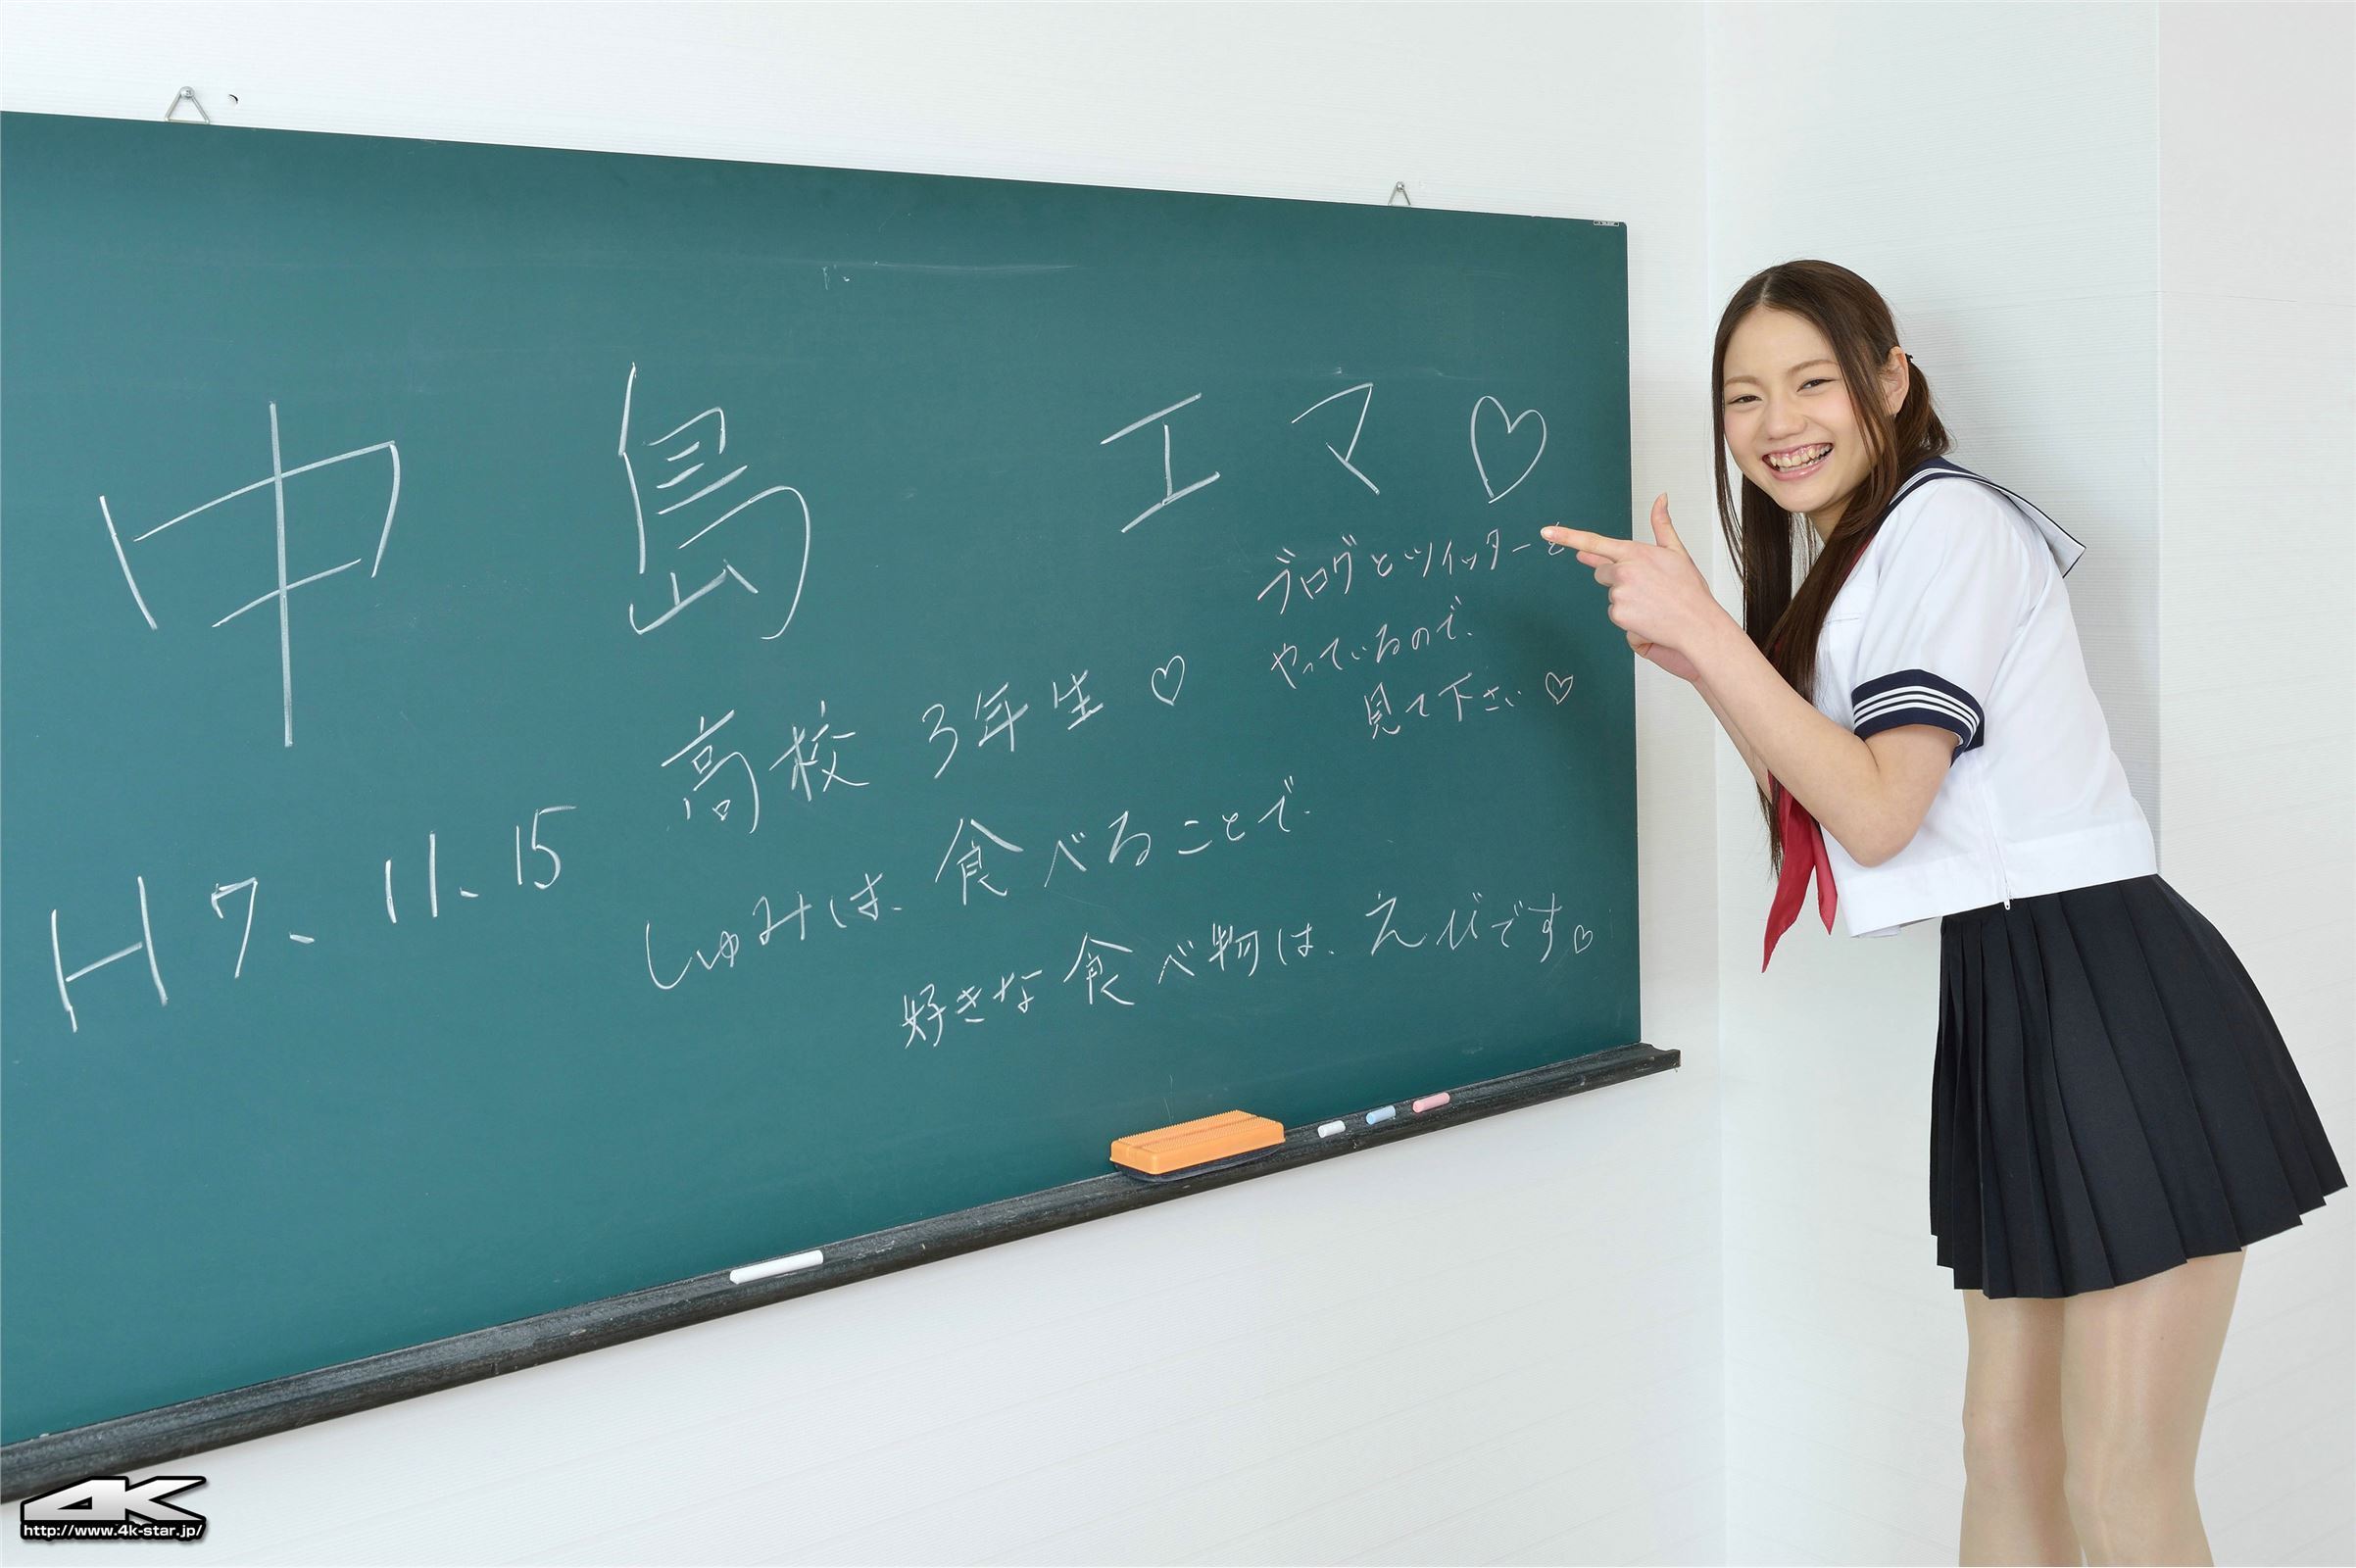 中島 エマ♡
ブログとツイッターを
やっているので、
見て下さい♡
高校3年生♡
H7.11.15
しゅみは、食べることで、
好きな食べ物は、えびです♡
4K
http://www.4k-star.jp/